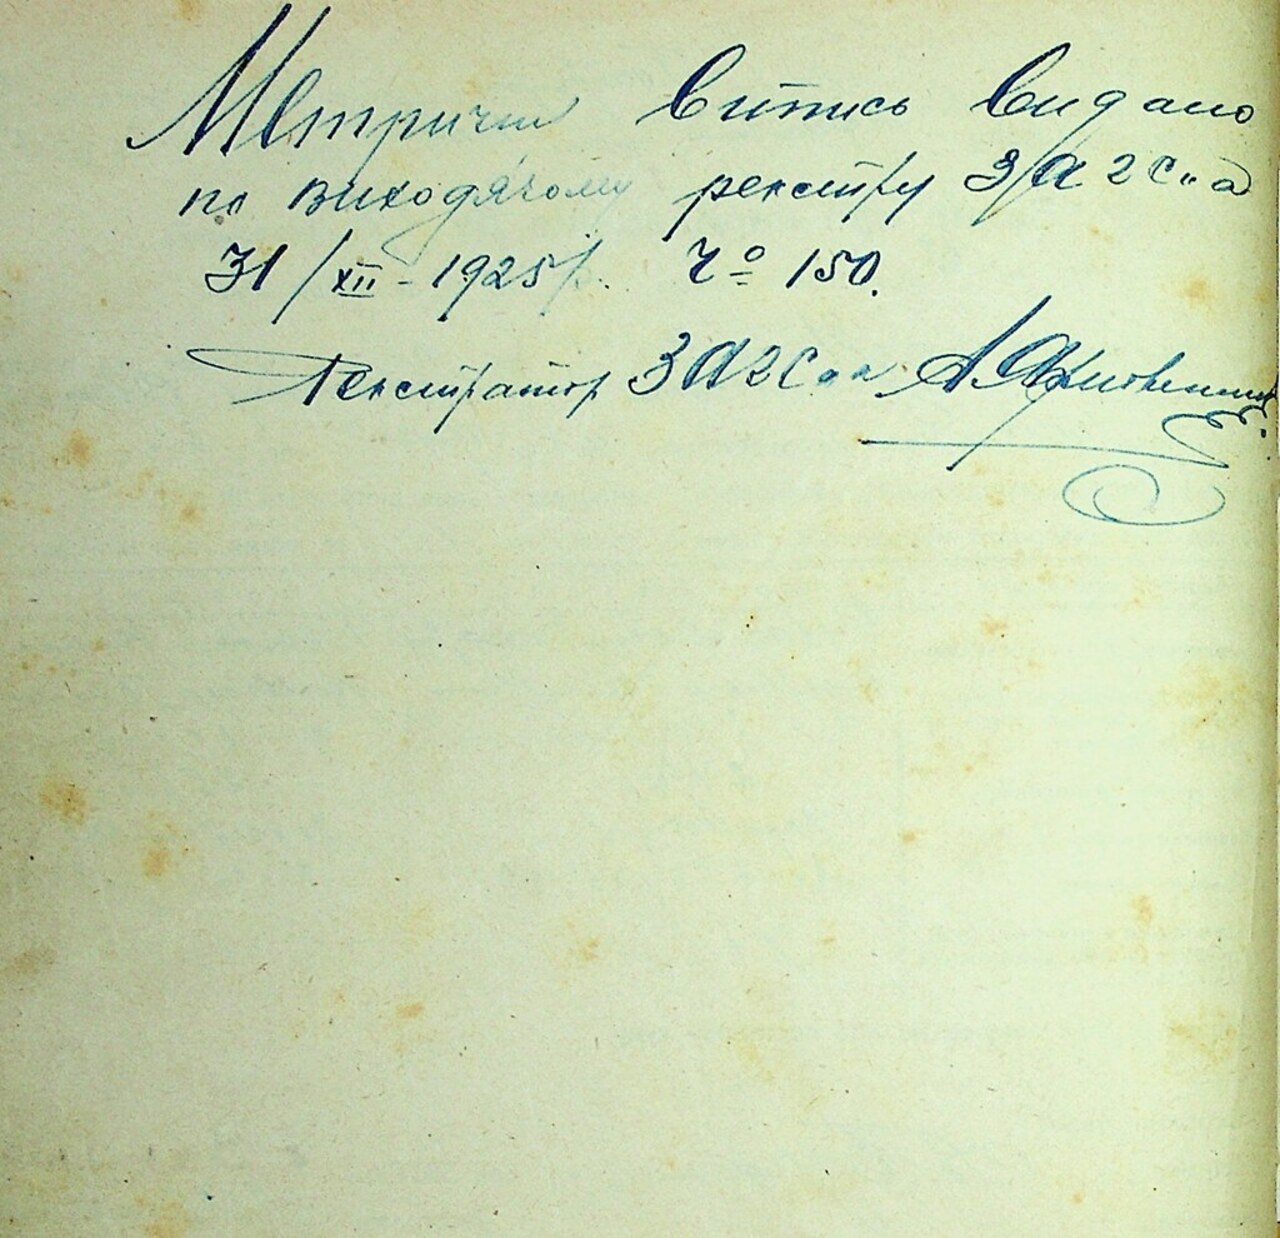 Метричний витпись видано
по виходячому реестру ЗАГС"а
31/XII - 1925 р. Чо 150.
Реестратор ЗАГСаа А.